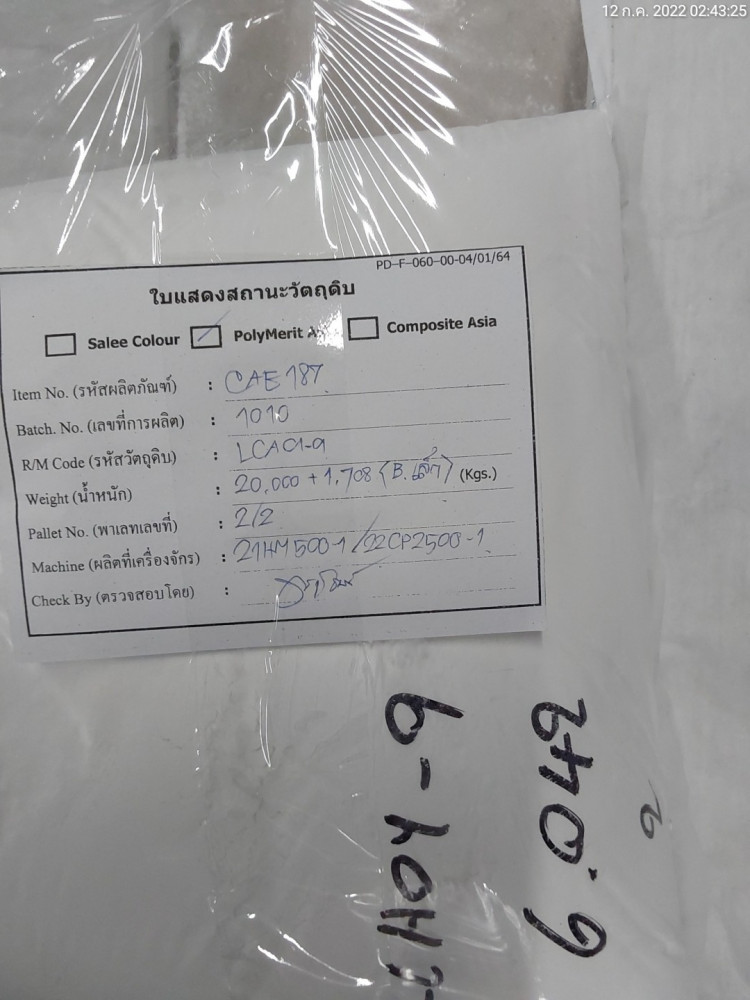 12 ก.ค. 2022 02:43:25
PD-F-060-00-04/01/64
ใบแสดงสถานะวัตถุดิบ
Salee Colour PolyMerit Composite Asia
Item No. (รหัสผลิตภัณฑ์) : CAE 187
Batch. No. (เลขที่การผลิต) : 1010
R/M Code (รหัสวัตถุดิบ) : LCA01-9
Weight (น้ำหนัก) : 20,000 + 1,708 (B.เล็ก) (Kgs.)
Pallet No. (พาเลทเลขที่) : 2/2
Machine (ผลิตที่เครื่องจักร) : 21HM500-1/22CP2500-1
Check By (ตรวจสอบโดย) :